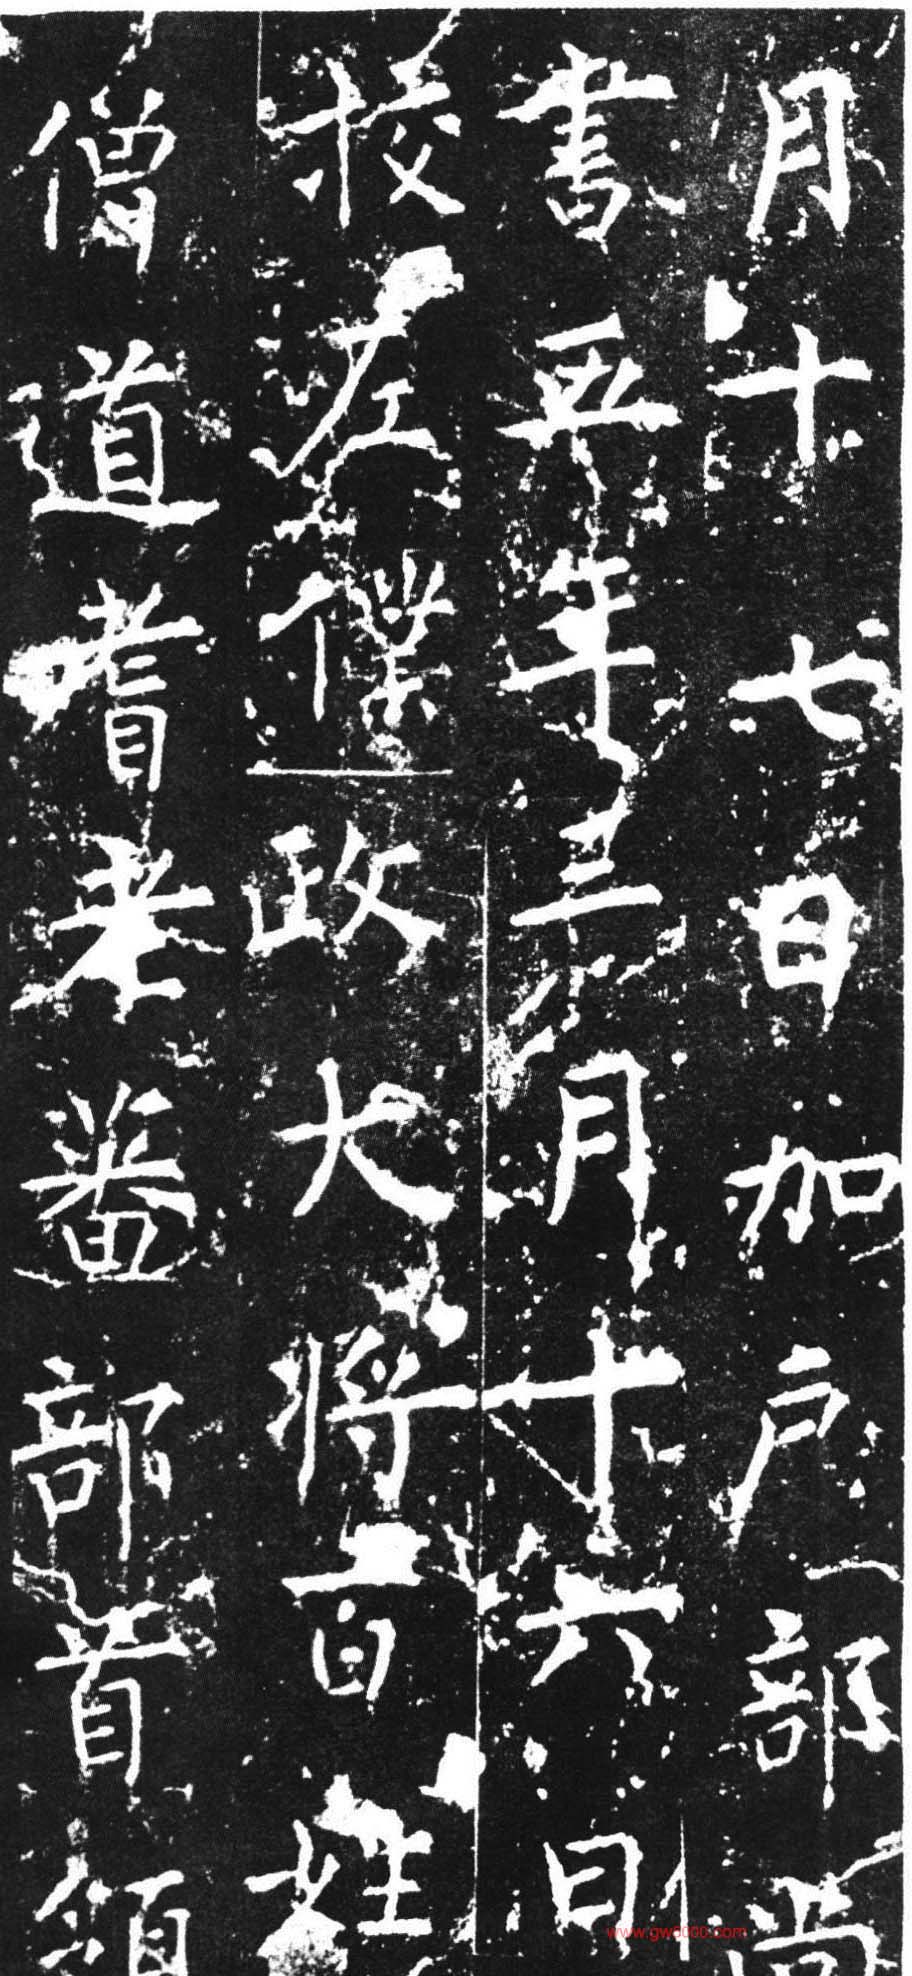 月十七日加户部尚
書五年三月十六日
校左僕政大将百姓
僧道耆老蕃部首領
www.gw5000.com